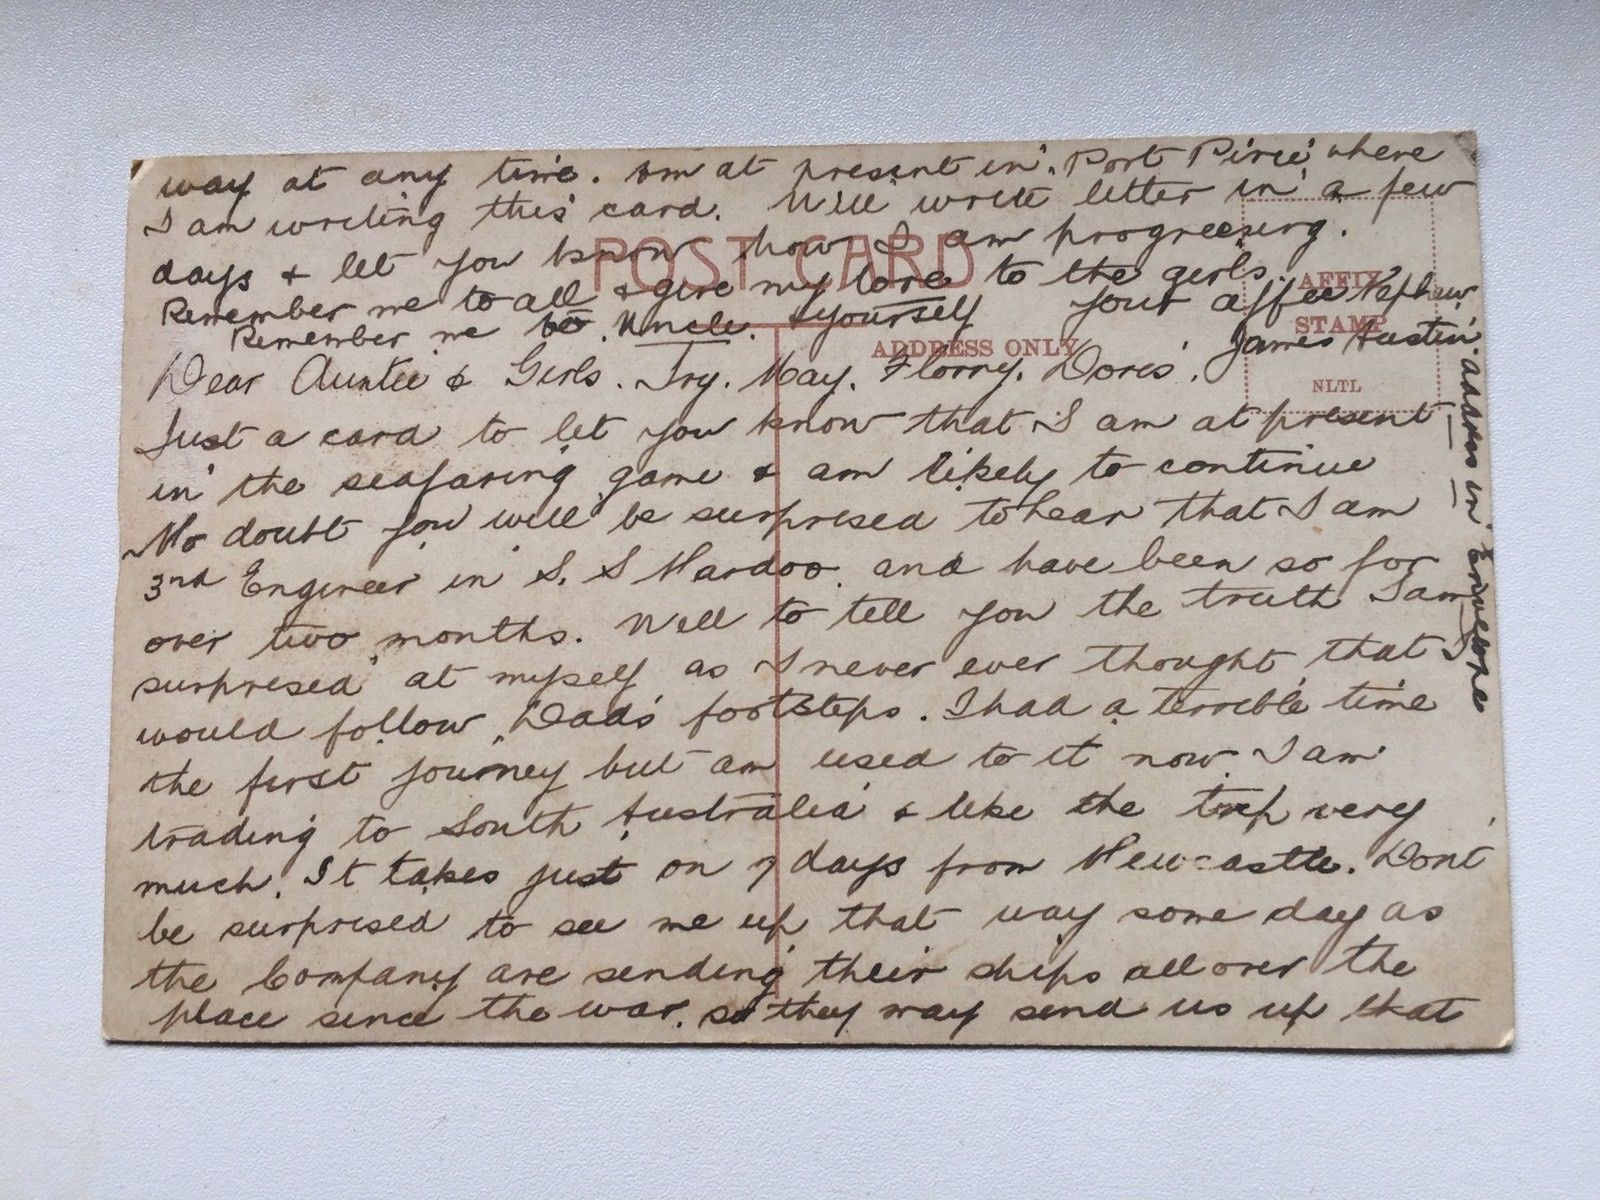 way at any time. Am at present in Port Pirie where
I am writing this card. Will write letter in a few
days & let you know how I am progreesing.
Remember me to all & give my love to the girls.
Remember me to Uncle. & yourself Your affec Nephew
James Austin.
POST CARD
ADDRESS ONLY
AFFIX
STAMP
NLTL
address in Envelope
Dear Auntie & Girls. Ivy. May. Florry. Doris.
Just a card to let you know that I am at present
in the seafaring game & am likely to continue
No doubt you will be surprised to hear that I am
3rd Engineer in S. S Mardoo and have been so for
over two months. Well to tell you the truth I am
surprised at myself as I never ever thought that I
would follow Dads footsteps. I had a terrible time
the first journey but am used to it now I am
trading to South Australia & like the trip very
much. It takes just on 7 days from Newcastle. Dont
be surprised to see me up that way some day as
the Company are sending their ships all over the
place since the war. so they may send us up that